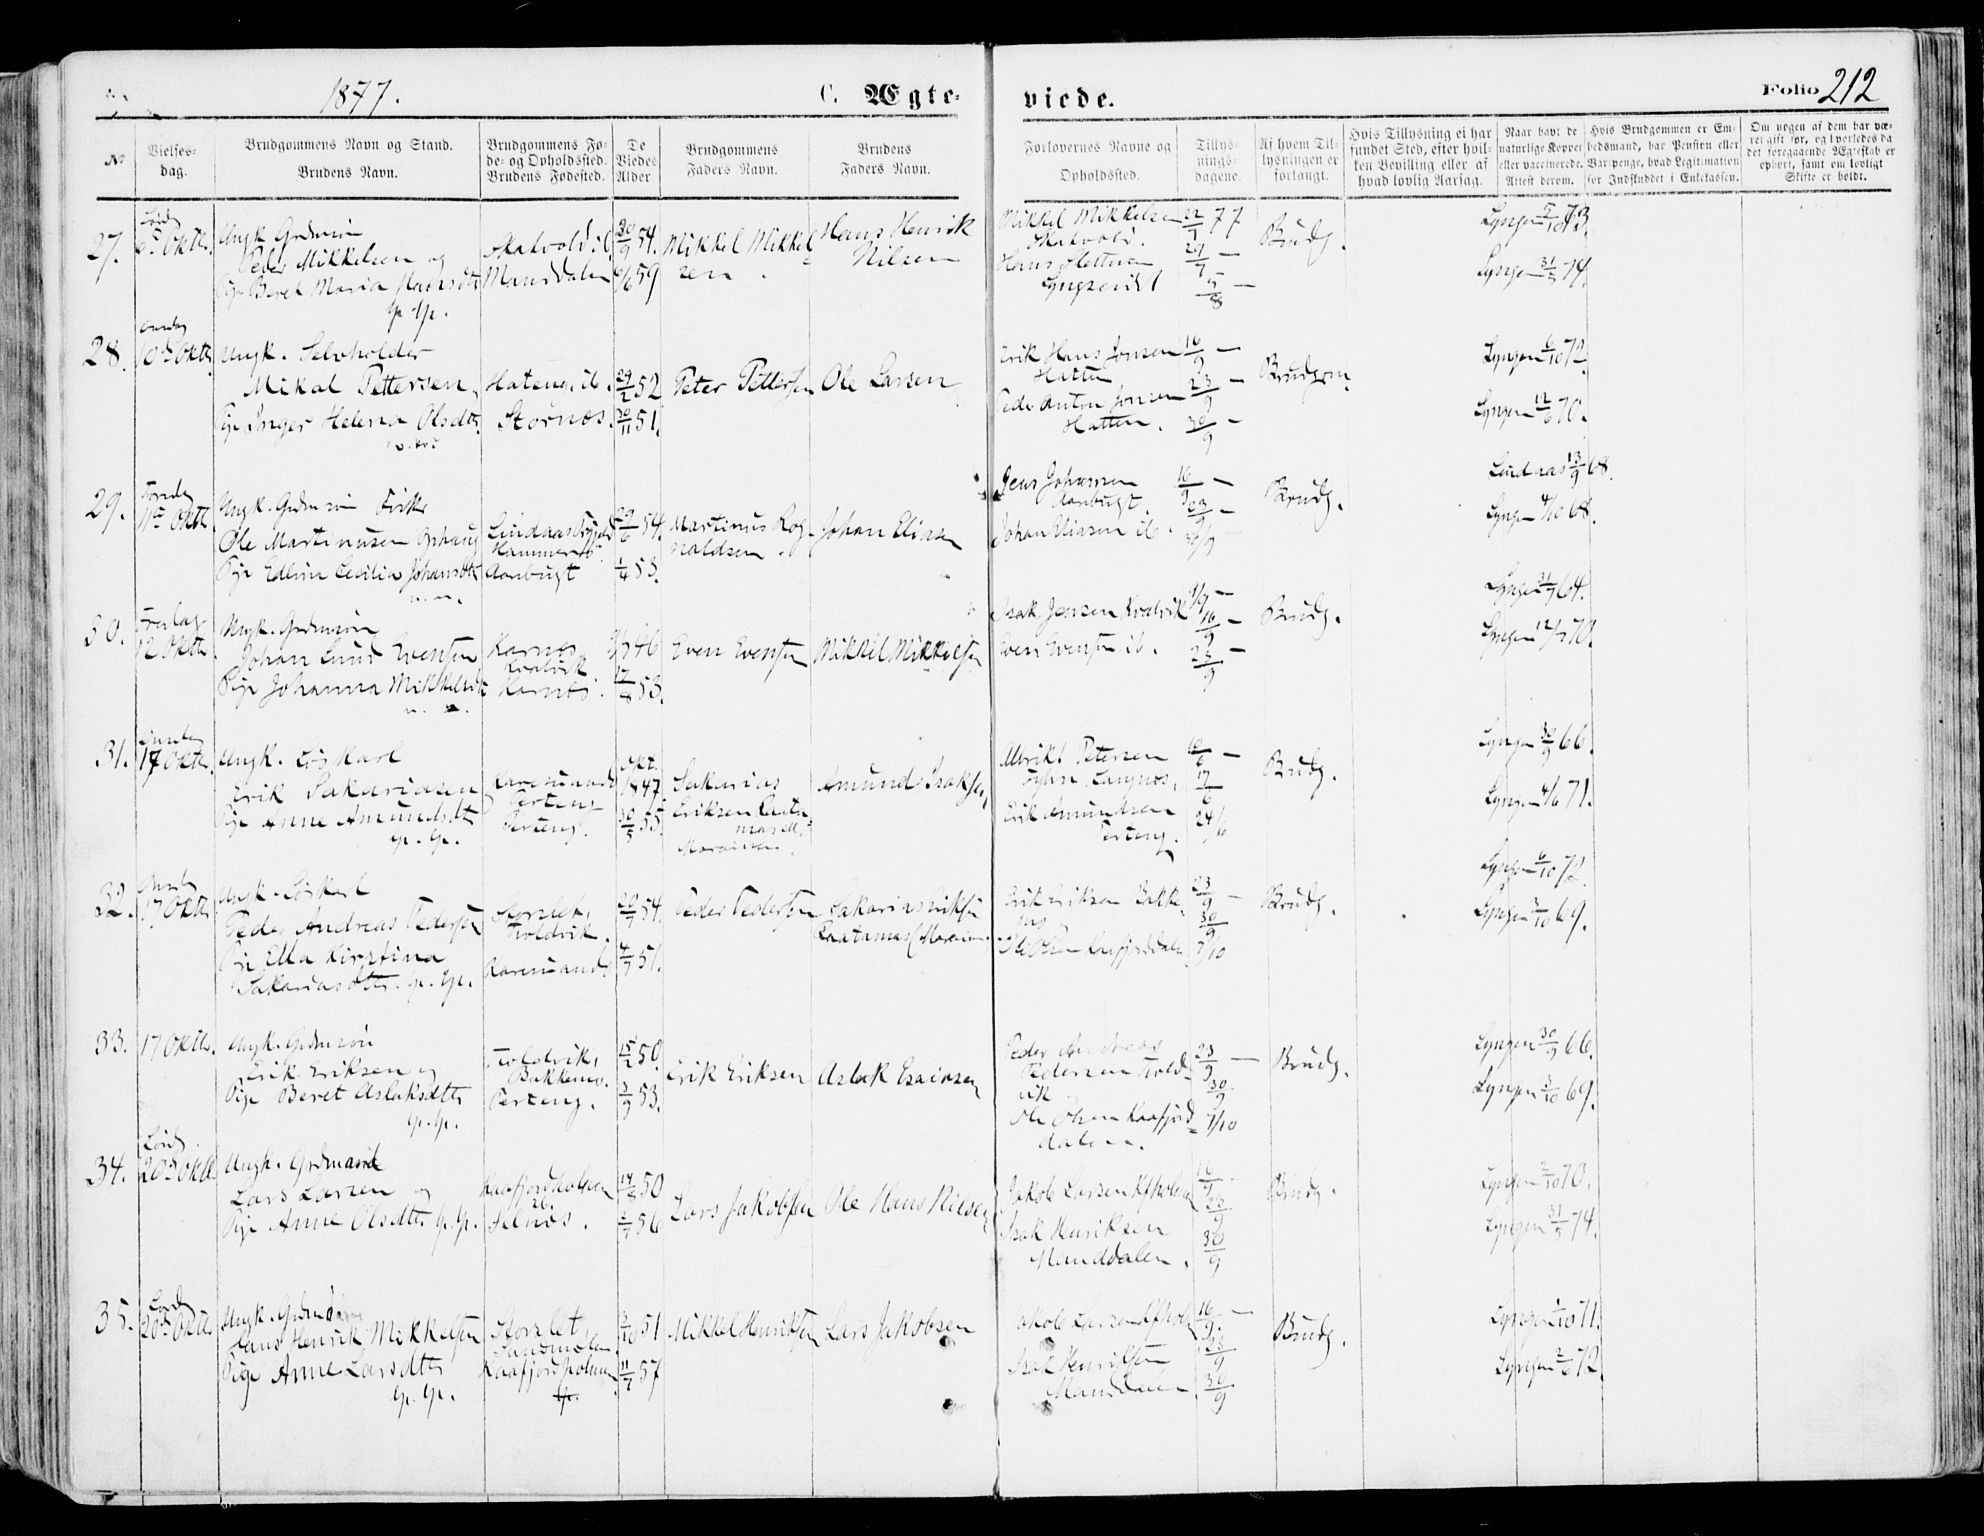 1877.
C. Ægte-
viede.
Folio 212
No
Vielses-
dag.
Brudgommens Navn og Stand.
Brudens Navn.
Brudgommens Fø-
de- og Opholdssted.
Brudens Fødested.
De
Viedes
Alder.
Brudgommens
Faders Navn.
Brudens
Faders Navn.
Forlovernes Navne og
Opholdssted.
Tillys-
nings-
dagene.
Af hvem Til-
lysningen er
forlangt.
Hvis Tillysning ei har
fundet Sted, efter hvil-
ken Bevilling eller af
hvad lovlig Aarsag.
Naar havt de
naturlige Kopper
eller vaccinerede.
Attest derom.
Hvis Brudgommen er Em-
bedsmand, har Pension eller
Varpenge, hvad Legitimation
for Indskuddet i Enkekassen.
Om nogen af dem har væ-
ret gift før, og hvorledes da
det foregaaende Ægteskab er
ophørt, samt om lovligt
Skifte er holdt.
27.
6te Oktb.
Ungk. Grdmsøn
Peder Mikkelsen og
Pige Beret Maria Hansdtr
Skatvold ib.
Manddalen
30/9 54.
59
Mikkel Mikkel-
sen.
Hans Henrik
Nilsen
Mikkel Mikkelsen
Skatvold.
Lyngseidet
22/7 77
29/7 —
5/8 —
Brudg.
Lyngen 73.
Lyngen 31/5 74.
28.
10de Oktb.
Ungk. Selvholder
Mikal Pettersen,
Pige Inger Helena Olsdtr.
Hateng, ib.
Stornes.
29/2 52
30/11 51.
Peter Pettersen
Ole Larsen
Erik Hans Jonsen
Hatten
Peder Anton Jonsen
Hatten.
16/9 —
23/9 —
30/9 —
Brudgom
Lyngen 6/10 72.
Lyngen 12/6 70.
29.
11te Oktb.
Ungk. Grdmsøn Fisker
Ole Martinusen Ophaug
Pige Edlun Cecilia Johansdtr
Aarbugt
54.
1/4 53.
Martinus Rog-
naldsen.
Johan Eliasen
Jens Johansen
Aarbugt.
Johan Eliassen ib.
16/9 —
23/9 —
30/9 —
Brudg.
Lindaas 13/9 68.
Lyngen 4/10 68.
30.
Fredag
12 Oktb.
Ungk. Grdmsøn
Johan Lund Evensen
Pige Johanna Mikkelsdtr
Karnes
Kvalvik
Karnes.
46
17/8 53.
Even Evensen
Mikkel Mikkelsen
Isak Jensen Kvalvik
Even Evensen ib.
16/9 —
23/9 —
Brudg.
Lyngen 31/7 64.
Lyngen 12/7 70.
31.
17 Oktb.
Ungk. Løskarl
Erik Sakariasen
Pige Anne Amundsdtr
gp. gp.
Karesuando
Perteng
Perteng.
Okt.
1847.
30/5 55.
Sakarias
Eriksen
Amund Isaksen
Albrikt Petersen
Langnes.
Erik Amundsen
Perteng.
10/6 —
17/6
24/6
Brudg.
Lyngen 30/9 66.
Lyngen 4/6 71.
32.
17 Oktb.
Ungk. Løskarl
Peder Andreas Pedersen
Pige Ella Kirstina
Sakariasdtr. gp. gp.
Storslet,
Troldvik.
Karesuando
29/7 54.
4/7 51.
Peder Pedersen
Sakarias Eriksen
Erik Eriksen Bakke-
Ole Olsen Kaafjorddalen
23/9 —
30/9
7/10
Brudg.
Lyngen 6/10 72.
Lyngen 3/10 69.
33.
17 Oktb.
Ungk. Grdmsøn
Erik Eriksen og
Pige Beret Aslaksdtr
gp. gp.
Troldvik,
Perteng.
15/2 50.
3/9 53.
Erik Eriksen
Aslak Esaiasen
Peder Andreas
Pedersen Trold-
vik
Ole Olsen Kaafjord-
dalen.
23/9 —
30/9
7/10
Brudg.
Lyngen 30/9 66.
Lyngen 3/10 69.
34.
Lørd.
20de Oktb.
Ungk. Grdmand
Lars Larsen og
Pige Anne Olsdtr gp. gp.
Kaafjordholmen
ib.
Selnes.
14/8 50
2/7 56
Lars Jakobsen
Ole Hans Nilsen
Jakob Larsen Kfholmen
Isak Henriksen
Manddalen.
16/9 -
23/9
30/9
Brudg.
Lyngen 2/10 70.
Lyngen 31/5 74.
35.
Lørd.
20de Oktb.
Ungk. Grdmsøn
Hans Henrik Mikkelsen
Pige Anne Larsdtr
gp. gp.
Storslet,
Kaafjordholmen
2/10 51
11/7 57
Mikkel Henriksen
Lars Jakobsen
Jakob Larsen Kfholm
Isak Henriksen
Manddalen
16/9 —
23/9
30/9
Brudg.
Lyngen 1/10 71.
Lyngen 2/6 72.